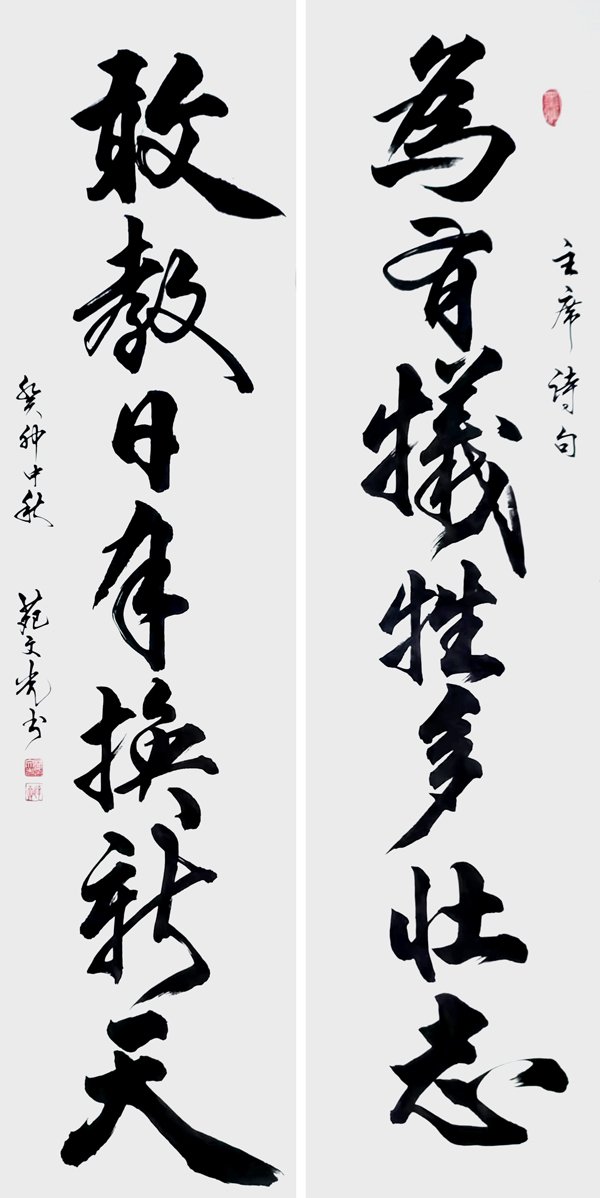 主席诗句
為有犧牲多壮志
敢教日年换新天
癸卯中秋 苑文光书